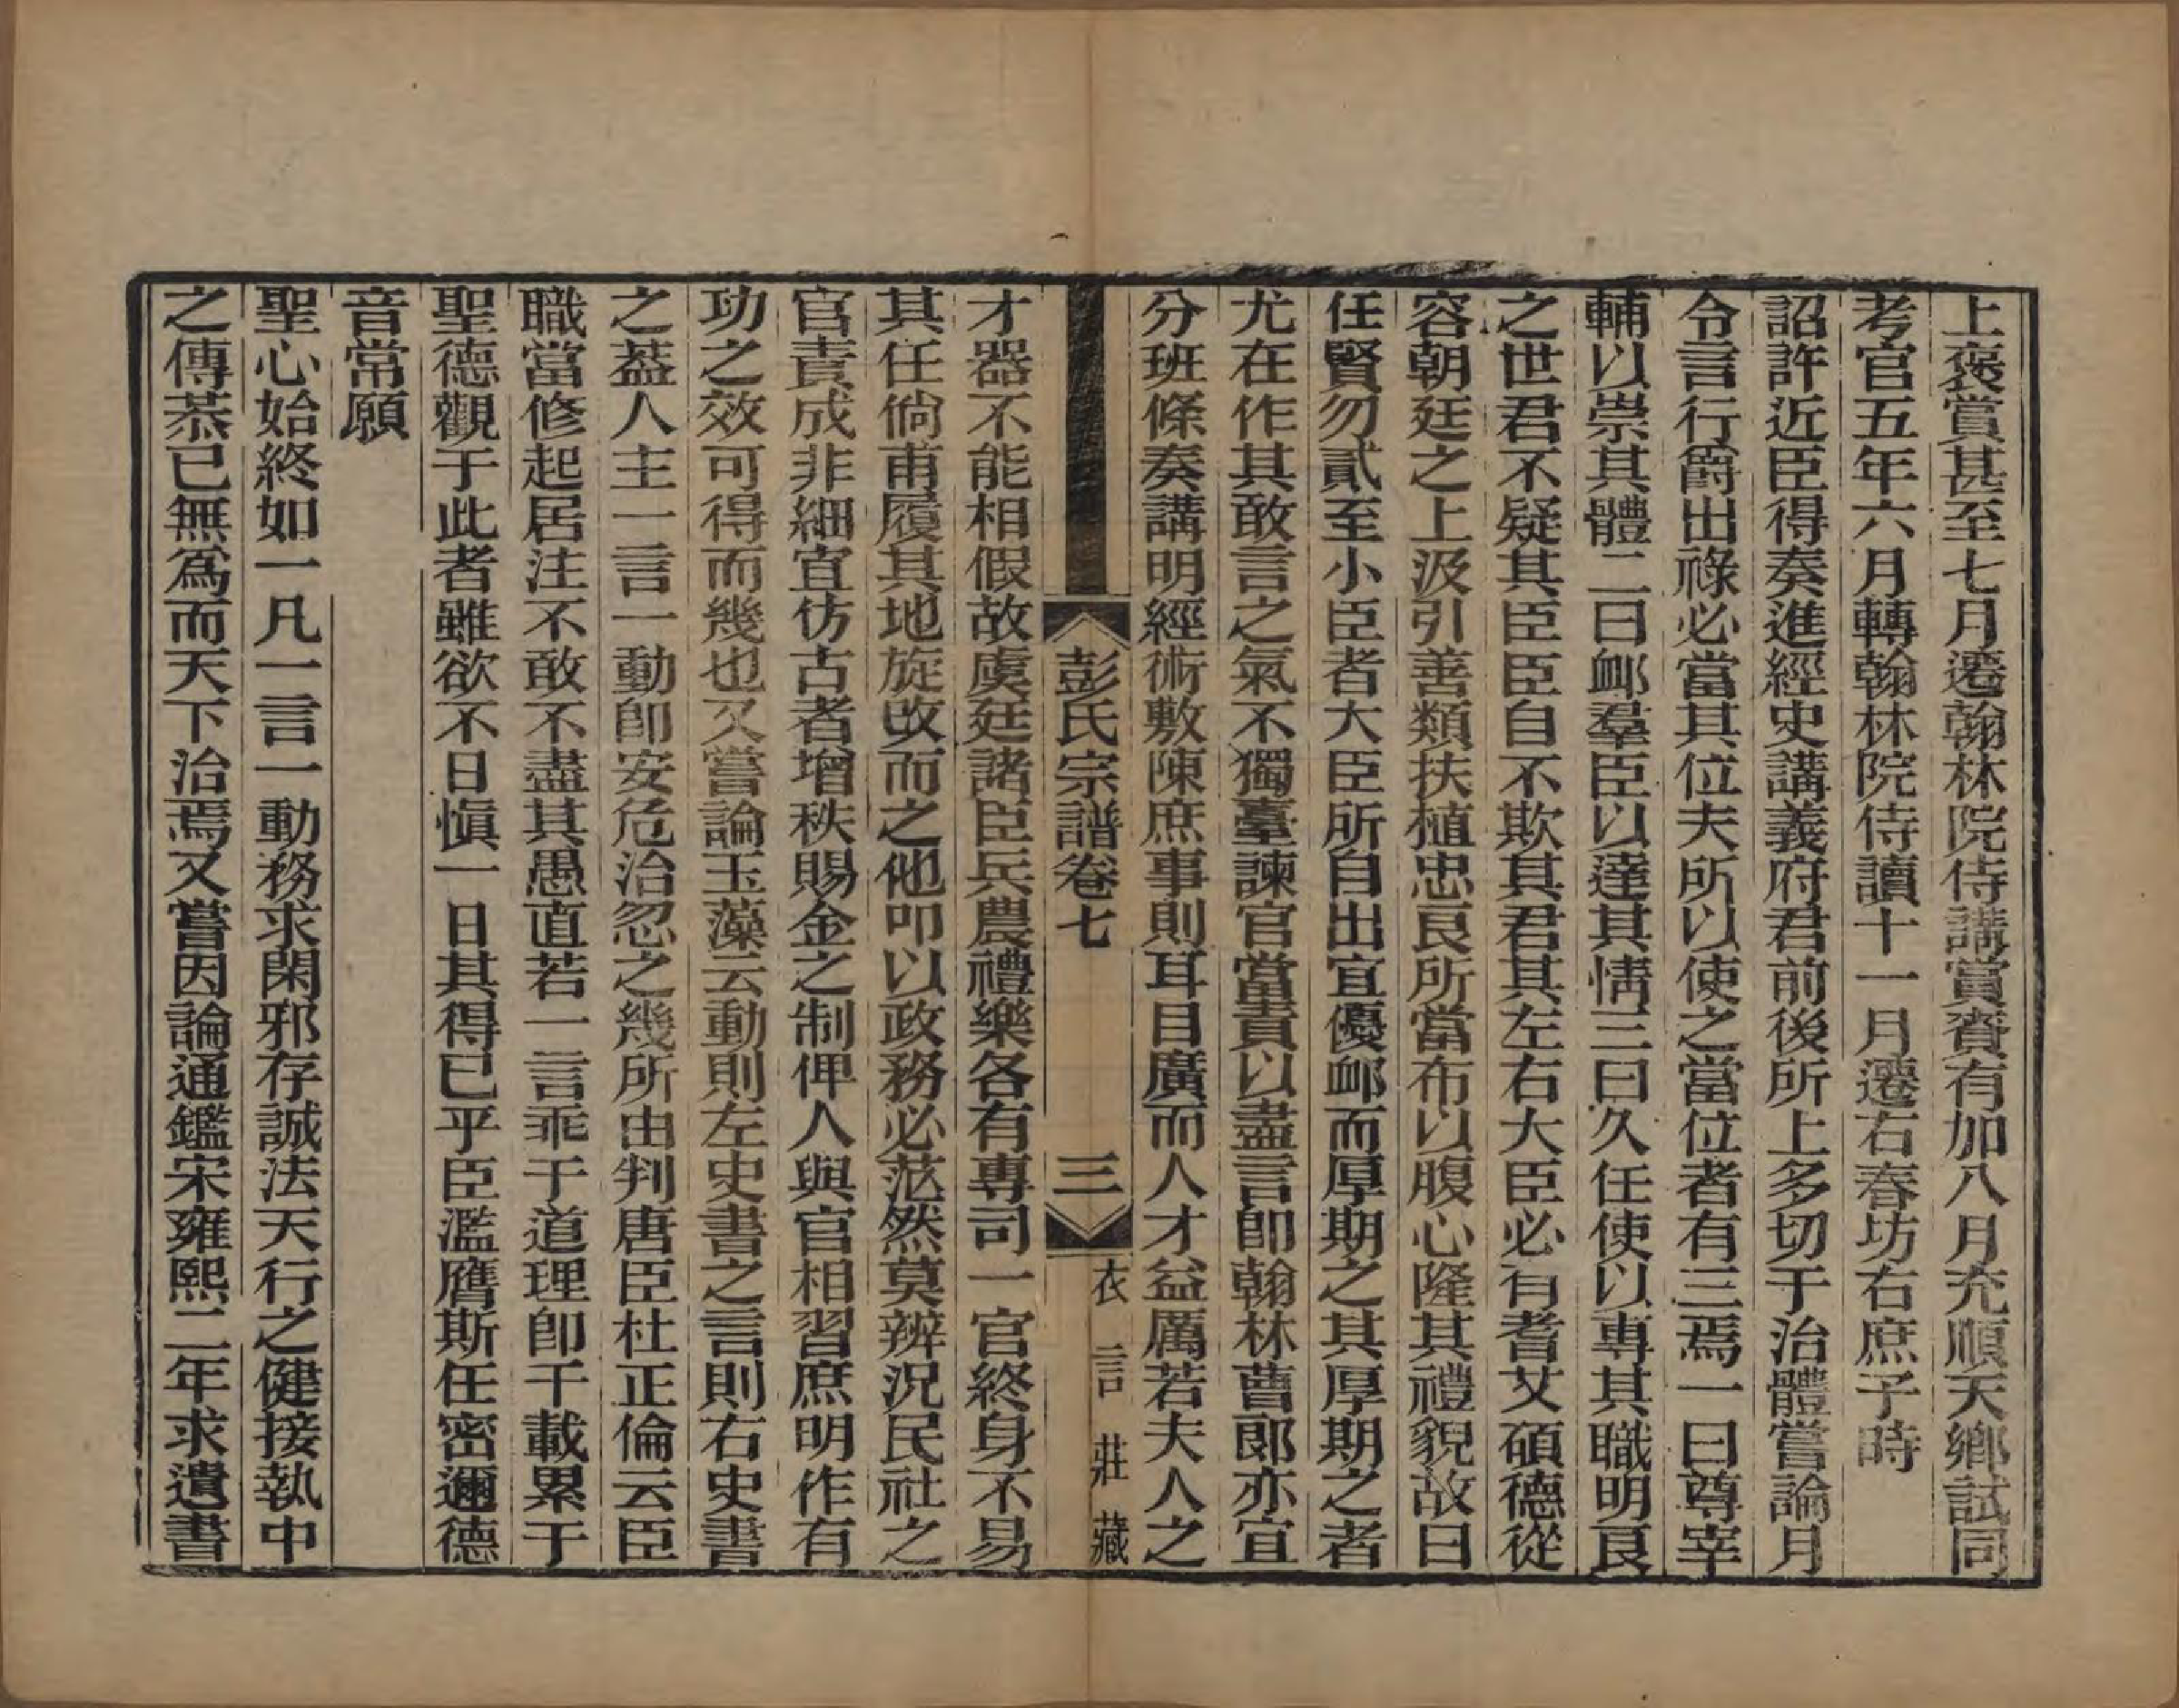 上褒賞甚至七月遷翰林院侍講賞賚有加八月充順天鄉試同
考官五年六月轉翰林院侍讀十一月遷右春坊右庶子時
詔許近臣得奏進經史講義府君前後所上多切于治體嘗論月
令言行爵出祿必當其位夫所以使之當位者有三焉一曰尊宰
輔以崇其體二曰卹羣臣以達其情三曰久任使以專其職明良
之世君不疑其臣臣自不欺其君其左右大臣必有耆艾碩德從
容朝廷之上汲引善類扶植忠良所當布以腹心隆其禮貌故曰
任賢勿貳至小臣者大臣所自出宜優卹而厚期之其厚期之者
尤在作其敢言之氣不獨臺諫官當責以盡言即翰林曹郎亦宜
分班條奏講明經術敷陳庶事則耳目廣而人才益厲若夫人之
彭氏宗譜卷七
三
衣言莊藏
才器不能相假故虞廷諸臣兵農禮樂各有專司一官終身不易
其任倘甫履其地旋改而之他叩以政務必茫然莫辨況民社之
官責成非細宜仿古者增秩賜金之制俾人與官相習庶明作有
功之效可得而幾也又嘗論玉藻云動則左史書之言則右史書
之葢人主一言一動即安危治忽之幾所由判唐臣杜正倫云臣
職當修起居注不敢不盡其愚直若一言乖于道理即千載累于
聖德觀于此者雖欲不日愼一日其得已乎臣濫膺斯任密邇德
音常願
聖心始終如一凡一言一動務求閑邪存誠法天行之健接執中
之傳恭已無爲而天下治焉又嘗因論通鑑宋雍熙二年求遺書